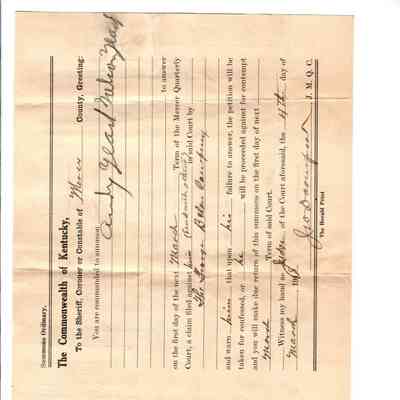 Summons Ordinary.
The Commonwealth of Kentucky,
To the Sheriff, Coroner or Constable of Mercer County, Greeting:
You are commanded to summon
Andy Gless Nelson
to answer
on the first day of the next March Term of the Mercer Quarterly
Court, a claim filed against him (and others) in said Court by
The George Company
and warn him that upon his failure to answer, the petition will be
taken for confessed, or he will be proceeded against for contempt
and you will make due return of this summons on the first day of next
March Term of said Court.
Witness my hand as Judge of the Court aforesaid, the 4th day of
March 191
Jno J. M. Q. C.
The Herald Print